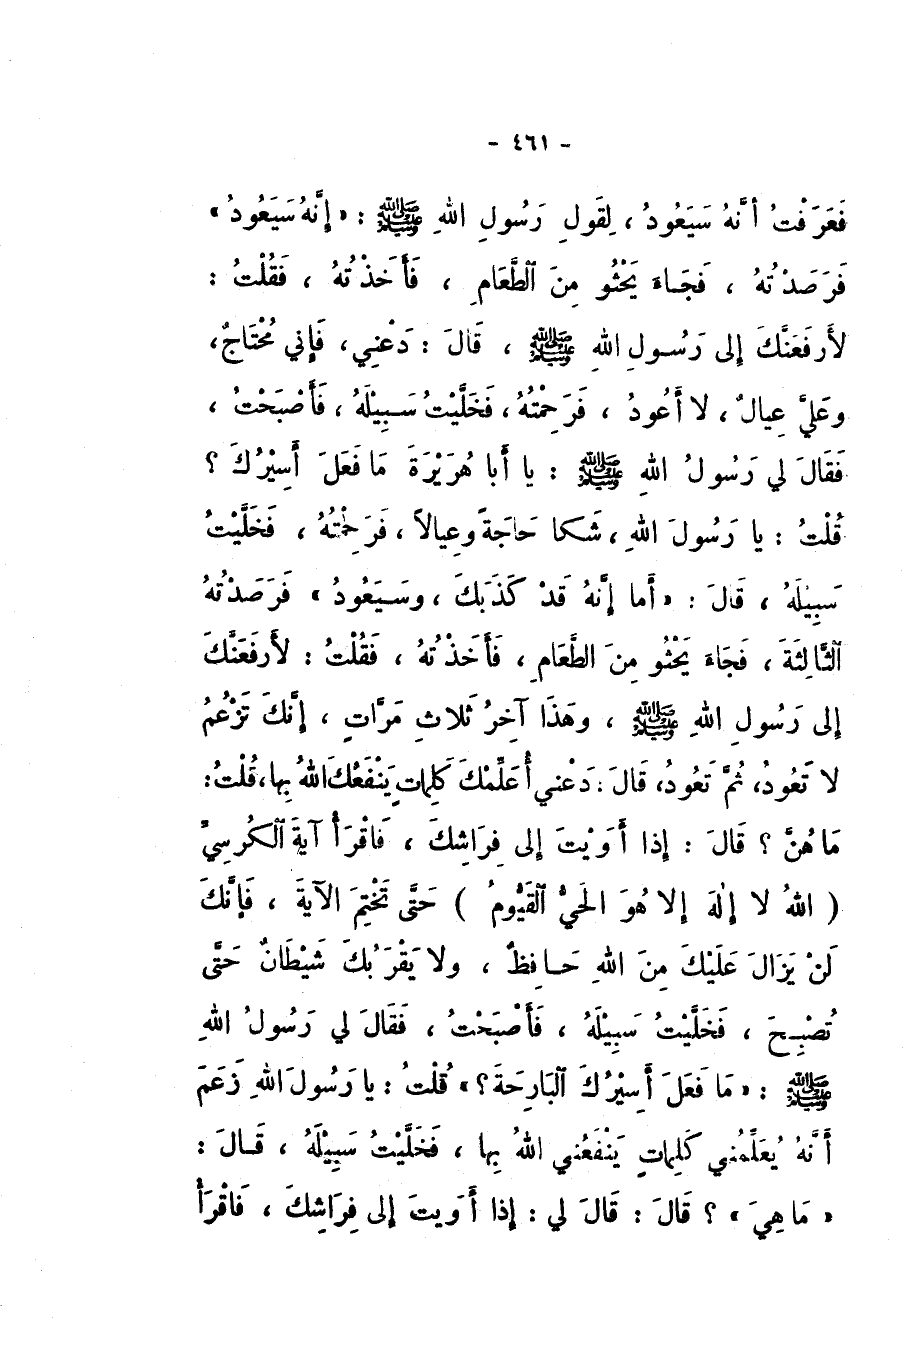 - ٤٦١ -
فَعَرَفْتُ أنَّهُ سَيَعُودُ ، لِقَولِ رَسُولِ اللهِ ﷺ : « إِنَّهُ سَيَعُودُ »
فَرَصَدْتُهُ ، فَجَاءَ يَحْثُو مِنَ ٱلطَّعَامِ ، فَأَخَذْتُهُ ، فَقُلْتُ :
لأَرفَعَنَّكَ إلى رَسُولِ اللهِ ﷺ ، قَالَ : دَعْنِي ، فَإني مُحْتَاجٌ ،
وعَليَّ عِيالٌ ، لا أَعُودُ ، فَرَحِمْتُهُ ، فَخَلَّيْتُ سَبِيْلَهُ ، فَأَصْبَحْتُ ،
فَقَالَ لي رَسُولُ اللهِ ﷺ : يا أَبا هُرَيْرَةَ مَا فَعَلَ أَسِيْرُكَ ؟
قُلْتُ : يا رَسُولَ اللهِ ، شَكا حَاجَةً وعِيالاً ، فَرَحِمْتُهُ ، فَخَلَّيْتُ
سَبِيْلَهُ ، قَالَ : « أَما إِنَّهُ قَدْ كَذَبَكَ ، وسَيَعُودُ » فَرَصَدْتُهُ
ٱلثَّالِثَةَ ، فَجَاءَ يَحْثُو مِنَ الطَّعَامِ ، فَأَخَذْتُهُ ، فَقُلْتُ : لأَرفَعَنَّكَ
إلى رَسُولِ اللهِ ﷺ ، وهَذَا آخِرُ ثَلاثِ مَرَّاتٍ ، إِنَّكَ تَزْعُمُ
لا تَعُودُ، ثُمَّ تَعُودُ، قَالَ : دَعْني أُعَلِّمْكَ كَلِماتٍ يَنْفَعُكَ اللهُ بِها، قُلْتُ:
مَا هُنَّ ؟ قَالَ : إذا أَوَيْتَ إلى فِرَاشِكَ ، فَاقْرَأْ آيَةَ ٱلكُرسِيِّ
( اللهُ لا إِلٰهَ إلا هُوَ الحَيُّ ٱلقَيُّومُ ) حَتَّى تَخْتِمَ الآيَةَ ، فَإنَّكَ
لَنْ يَزَالَ عَلَيْكَ مِنَ اللهِ حَافِظٌ ، ولا يَقْرَبُكَ شَيْطَانٌ حَتَّى
تُصْبِحَ ، فَخَلَّيْتُ سَبِيْلَهُ ، فَأَصْبَحْتُ ، فَقَالَ لي رَسُولُ اللهِ
ﷺ : « مَا فَعَلَ أَسِيْرُكَ ٱلبَارِحَةَ ؟ » قُلْتُ : يا رَسُولَ اللهِ زَعَمَ
أَنَّهُ يُعَلِّمُني كَلِماتٍ يَنْفَعُني اللهُ بِها ، فَخَلَّيْتُ سَبِيْلَهُ ، قَالَ :
« مَا هِيَ » ؟ قَالَ : قَالَ لي : إذا أَوَيتَ إلى فِرَاشِكَ ، فَاقْرَأْ